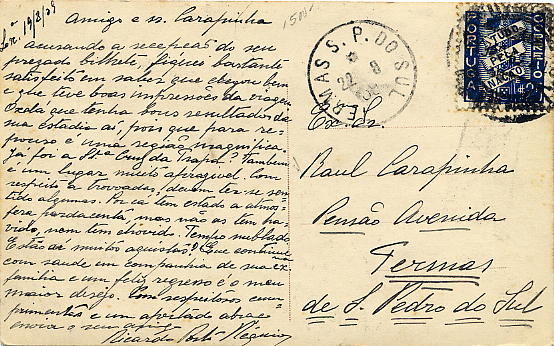 19/8/39
Amigo e Sr. Carapinha
acusando a recepção do seu
prezado bilhete, fiquei bastante
satisfeito em saber que chegou bem
e que teve boas impressões da viagem
Oxalá que tenha bons resultados da
sua estadia aí, pois que para re-
pouso é uma região magnífica.
Já foi a Stª Cruz da Trapa? Também
é um lugar muito aprazível. Com
respeito a trovoadas, devem ter-se sen-
tido algumas. Por cá tem estado a atmos-
fera pardacenta, mas não as tem ha-
vido, nem tem chovido. Tempo nublado.
Estão aí muitos aquistas? Que continue
com saude em companhia de sua Exª
família e um feliz regresso é o meu
maior desejo. Com respeitosos cum-
primentos e um apertado abraço
envia o seu amigo
Ricardo
S. P. DO SUL
22 8
PORTUGAL
CORREIO
TUDO
PELA
NAÇÃO
Ex. Sr.
Raul Carapinha
Pensão Avenida
Termas
de S. Pedro do Sul